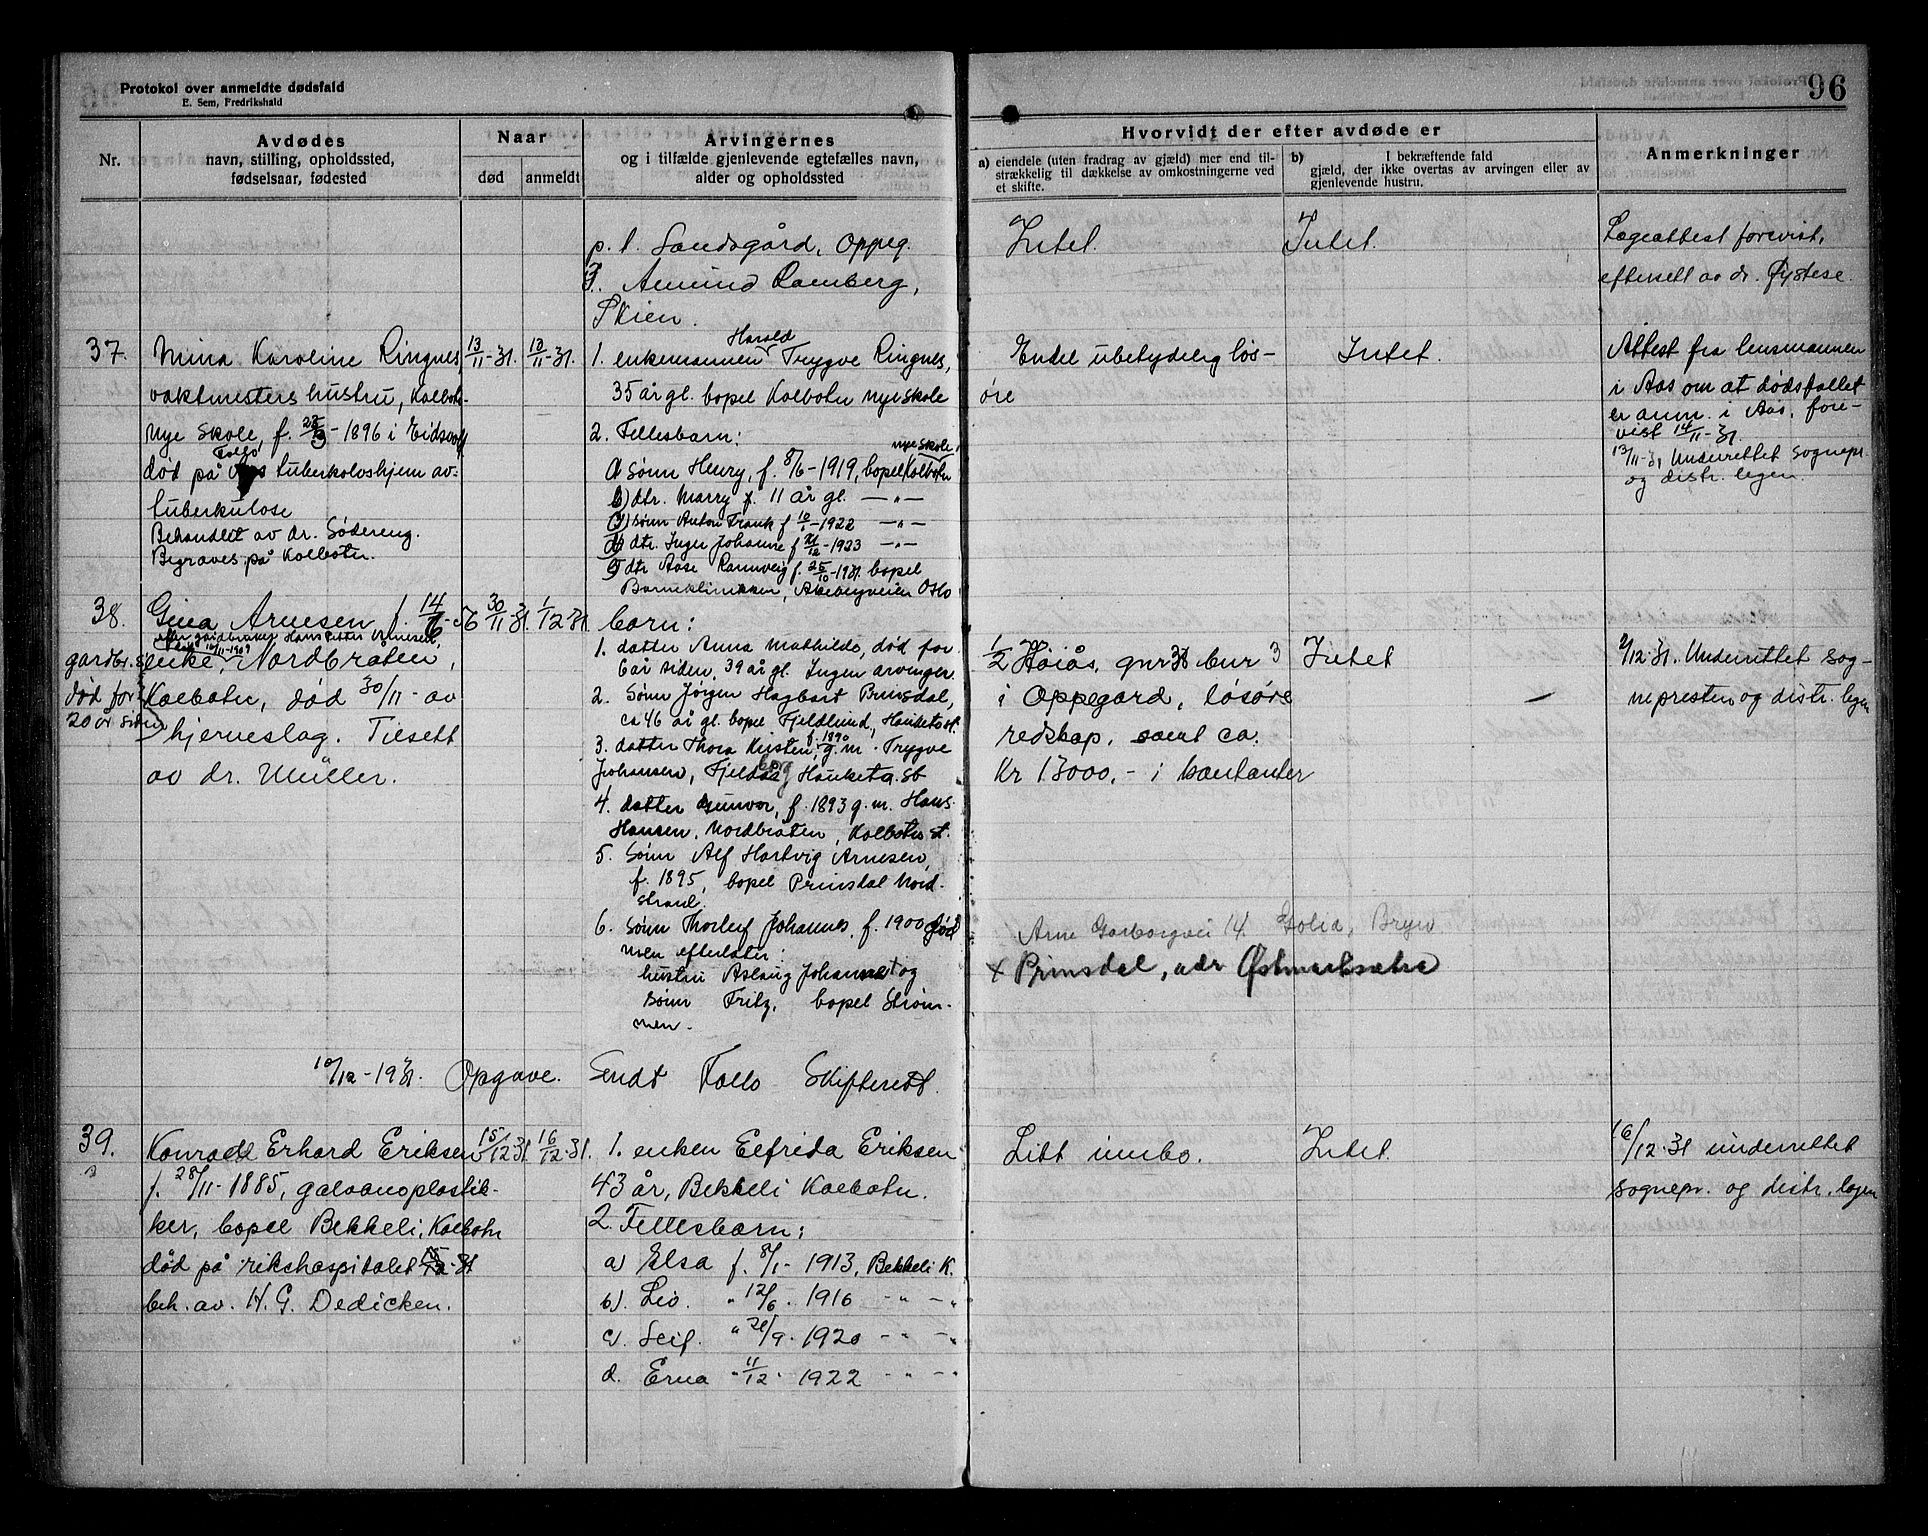 Protokol over anmeldte dødsfald
E. Sem, Fredrikshald
96
Nr.
Avdødes
navn, stilling, opholdssted,
fødselsaar, fødested
Naar
død
anmeldt
Arvingernes
og i tilfælde gjenlevende egtefælles navn,
alder og opholdssted
Hvorvidt der efter avdøde er
a) eiendele (uten fradrag av gjæld) mer end til-
strækkelig til dækkelse av omkostningerne ved
et skifte.
b) I bekræftende fald
gjæld, der ikke overtas av arvingen eller av
gjenlevende hustru.
Anmerkninger
p. t. Sandsgård, Oppeg.
7. Amund Ramberg,
Skien.
Intet.
Intet.
Lægeattest forevist,
eftersett av dr. Øystese.
37.
Mina Karoline Ringnes
vaktmesters hustru, Kolbotn
nye skole, f. - 1896 i Eidsvoll
Follo
død på tuberkuloshjem av
tuberkulose
Behandlet av dr. Södereng.
Begraves på Kolbotn.
13/11-31.
13/11-31.
Harald
1. enkemannen Trygve Ringnes,
35 år gl. bopel Kolbotn nye skole
2. Fellesbarn:
nye skole
a) sønn Henry, f. 8/6-1919, bopel Kolbotn
b) dtr. Marry f. 11 år gl. — " —
sønn Anton Frank f 10/1-1922 — " —
dtr. Inger Johanne f 21/12-1923 — " —
dtr Aase Rannveig f. 25/10-1931. bopel
Barneklinikken, Akebergveien Oslo
Endel ubetydelig løs-
øre
Intet.
Attest fra lensmannen
i Aas om at dødsfallet
er anm. i Aas, fore-
vist 14/11-31.
13/11-31 Underrettet sognepr.
og distr. legen.
38.
Gina Arnesen, f. 14/6-56
efter gårdbruker Hans Petter Arnesen,
16/11-1909
gardbr.s enke, Nordbråten,
død for Kolbotn, død 30/11- av
20 år siden hjerneslag. Tilsett
av dr. Müller.
30/11-31.
1/12-31.
barn:
1. datter Anna Mathilde, død for
6 år siden, 39 år gl. Ingen arvinger
2. Sønn Jørgen Hagbart Prinsdal,
ca 46 år gl. bopel Fjeldlund, Hauketo st.
f. 1890
3. datter Thora Kirsten g.m. Trygve
Johansen, Fjeldborg Hauketo st
4. datter Gunvor, f. 1893 g.m. Hans
Hansen, Nordbråten, Kolbotn st.
5. Sønn Alf Hartvig Arnesen,
f. 1895, bopel Prinsdal Nord-
strand.
6. Sønn Thorleif Johannes, f. 1900 død
men efterlater:
hustru Aslaug Johanne og
sønn Fritz, bopel Strøm-
men.
1/2 Høiås, gnr 38 bnr 3
i Oppegård, løsøre
redskap, samt ca.
Kr 13000,- i kontanter
Intet
2/12-31. Underrettet sog-
nepresten og distr. legen
Arne Garborgvei 14 Bryn
x Prinsdal, Østmarksætra
10/12-1931. Opgave. Sendt Follo Skifterett.
39.
Konrad Erhard Eriksen
f. 28/11-1885, galvanoplastik-
ker, bopel Bekkeli, Kolbotn
død på rikshospitalet
beh. av. H. G. Dedicken.
15/12-31.
16/12-31.
1. enken Elfrida Eriksen
43 år, Bekkeli Kolbotn.
2. Fellesbarn:
a) Elsa f. 8/1-1913, Bekkeli K.
b). Liv. " 12/6. 1916 - " - "
c). Leif. " 21/9. 1920 - " - "
d. Erna " 11/12. 1922 - " - "
Litt innbo.
Intet.
16/12-31 underrettet
sognepr. og distr. legen